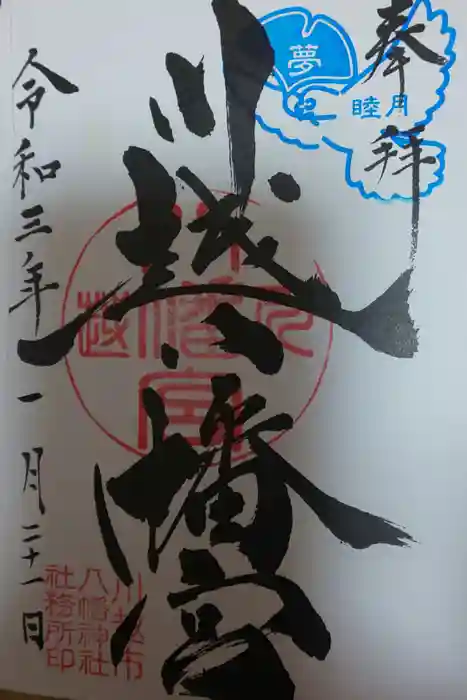 奉拝
夢
睦月
川越八幡宮
令和三年一月二十一日
川越市
八幡神社
社務所印